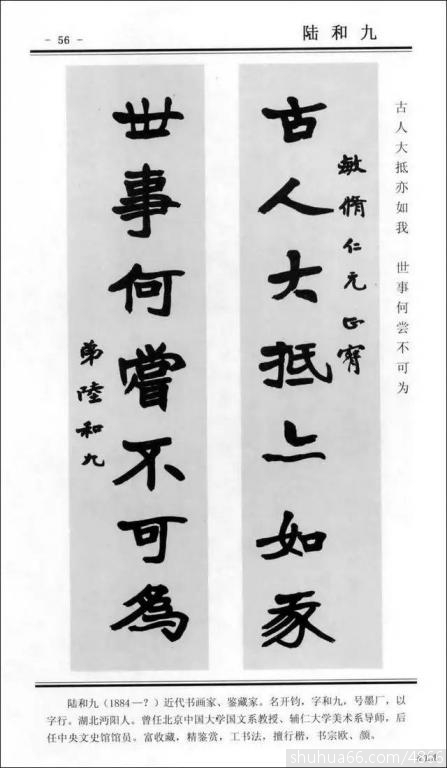 - 56 -
陆和九
古人大抵亦如我 世事何尝不可为
敏脩仁兄正
古人大抵亦如我
世事何嘗不可為
弟陸和九
陆和九（1884—？）近代书画家、鉴藏家。名开钧，字和九，号墨厂，以
字行。湖北沔阳人。曾任北京中国大学国文系教授、辅仁大学美术系导师，后
任中央文史馆馆员。富收藏，精鉴赏，工书法，擅行楷，书宗欧、颜。
shuhua66.com